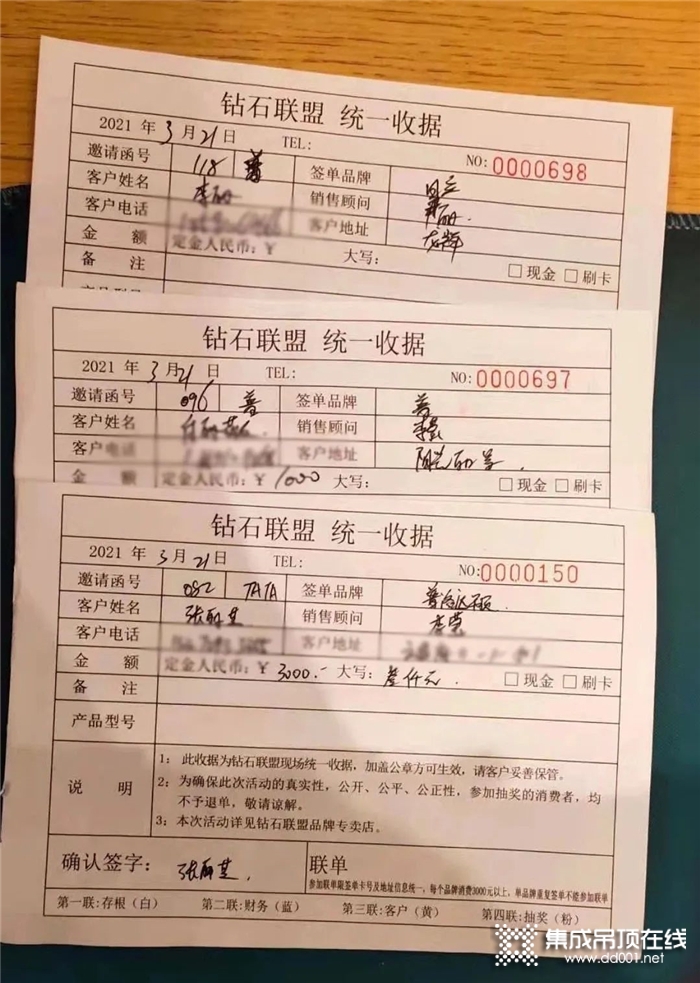 钻石联盟 统一收据
2021 年 3 月 21 日 TEL: NO: 0000698
邀请函号 118 普 签单品牌
客户姓名 李丽 销售顾问
客户电话 客户地址 龙辉
金 额 定金人民币:¥ 大写: □现金 □刷卡
备 注
产品型号
钻石联盟 统一收据
2021 年 3 月 21 日 TEL: NO: 0000697
邀请函号 096 普 签单品牌 普
客户姓名 销售顾问
客户电话 客户地址
金 额 定金人民币:¥ 1000 大写: □现金 □刷卡
钻石联盟 统一收据
2021 年 3 月 21 日 TEL: NO: 0000150
邀请函号 082 TATA 签单品牌
客户姓名 张丽 销售顾问
客户电话 客户地址
金 额 定金人民币:¥ 3000.- 大写: 叁仟元 □现金 □刷卡
备 注
产品型号
说 明
1: 此收据为钻石联盟现场统一收据,加盖公章方可生效,请客户妥善保管。
2: 为确保此次活动的真实性,公开、公平、公正性,参加抽奖的消费者,均
不予退单,敬请谅解。
3: 本次活动详见钻石联盟品牌专卖店。
确认签字: 张丽 联单
参加联单限签单卡号及地址信息统一;每个品牌消费3000元以上,单品牌重复签单不能参加联单
第一联:存根(白) 第二联:财务(蓝) 第三联:客户(黄) 第四联:抽奖(粉)
集成吊顶在线
www.dd001.net